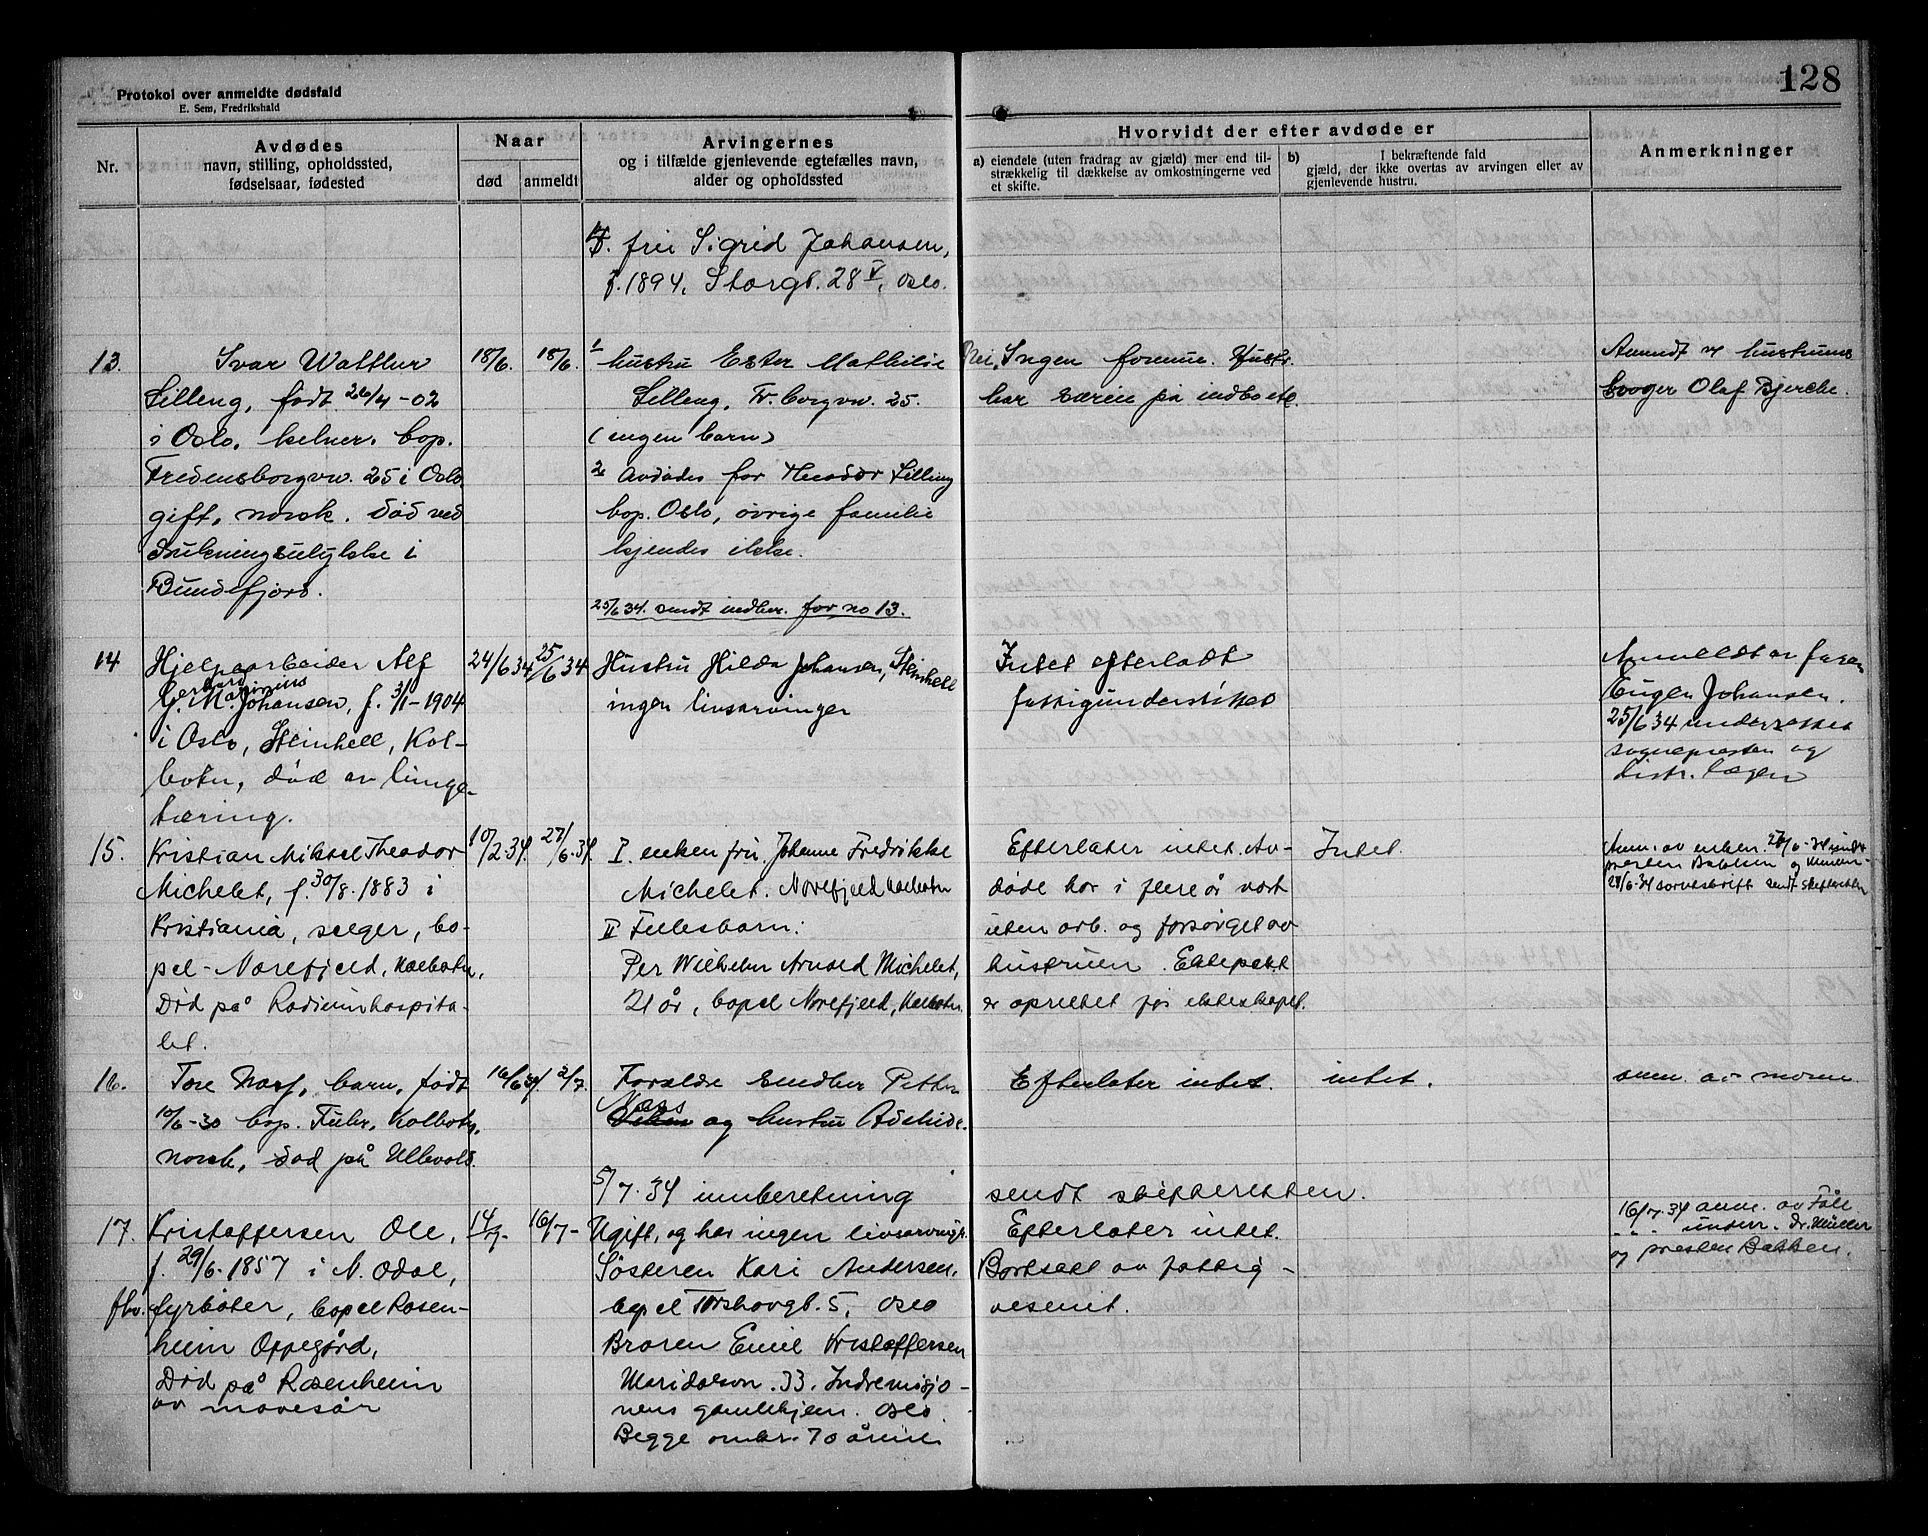 128
Protokol over anmeldte dødsfald
E. Sem, Fredrikshald
Nr.
Avdødes
navn, stilling, opholdssted,
fødselsaar, fødested
Naar
død
anmeldt
Arvingernes
og i tilfælde gjenlevende egtefælles navn,
alder og opholdssted
Hvorvidt der efter avdøde er
a) eiendele (uten fradrag av gjæld) mer end til-
strækkelig til dækkelse av omkostningerne ved
et skifte.
b) I bekræftende fald
gjæld, der ikke overtas av arvingen eller av
gjenlevende hustru.
Anmerkninger
fru Sigrid Johansen,
f. 1894, Storgt. 28 V, Oslo.
13.
Ivar Walther
Lilleng, født 26/4-02
i Oslo, kelner, bop.
Fredensborgvn. 25 i Oslo
gift, norsk. død ved
drukningsulykke i
Bundefjord.
18/6.
18/6.
1 hustru Ester Mathilie
Lilleng, Fr.borgvn. 25.
(ingen barn)
2 Avdødes far Theodor Lilleng
bop. Oslo, øvrige familie
kjendes ikke.
25/6 34. sendt indber. for no 13.
Nei. Ingen formue. Hustr.
har særeie på indbo etc.
Anmdt av hustruens
svoger Olaf Bjerche.
14
Hjelpearbeider Alf
Gerhard Marinius
G. M. Johansen, f. 3/1-1904
i Oslo, Steinhell, Kol-
botn, død av lunge-
tæring.
24/6 34
25/6 34
Hustru Hilda Johansen, Steinhell
ingen livsarvinger
Intet efterladt
fattigunderstøttet
Anmeldt av faren
Eugen Johansen.
25/6 34 underrettet
sogneprester og
distr. lægen
15.
Kristian Mikael Theodor
Michelet, f. 30/8. 1883 i
Kristiania, selger, bo-
pel - Norefjeld, Kolbotn,
Død på Radiumhospita-
let.
10/2.34.
27/6.34.
I. enken fru Johanne Fredrikke
Michelet. Norefjeld Kolbotn
II Fellesbarn:
Per Wilhelm Arnold Michelet,
21 år, bopel Norefjeld, Kolbotn.
Efterlater intet. Av-
døde har i flere år vært
uten arb. og forsørget av
hustruen. Ektepakt
er oprettet før ekteskapet.
Intet.
Anm. av enken. 27/6-34 undr
presten Bakken og
28/6-34 sendt skifteretten
16.
Tore Næss, barn, født
10/6-30 bop. Kolbotn,
norsk, død på Ullevold.
16/6 34.
2/7.
Forældre Petter
Næss
og hustru Adelheide.
5/7.34 innberetning sendt skifteretten.
Efterlater intet.
intet.
anm. av moren
17.
fhv.
Kristoffersen Ole,
f. 29/6. 1857 i N. Odal,
fyrbøter, bopel Rosen-
heim Oppegård,
Død på Rosenheim
av mavesår
14/7.
16/7-
Ugift, og har ingen livsarving.
Søsteren Kari Andersen,
bopel Torshovgt. 5, Oslo
Broren Emil Kristoffersen
Maridalsvn. 33. Indremisjo-
nens gamlehjem. Oslo.
Begge omkr. 70 årene
Efterlater intet.
Bortsatt av fattig-
vesenet.
16/7.34 anm. av
" " underr. Dr. Müller
og presten Bakken.